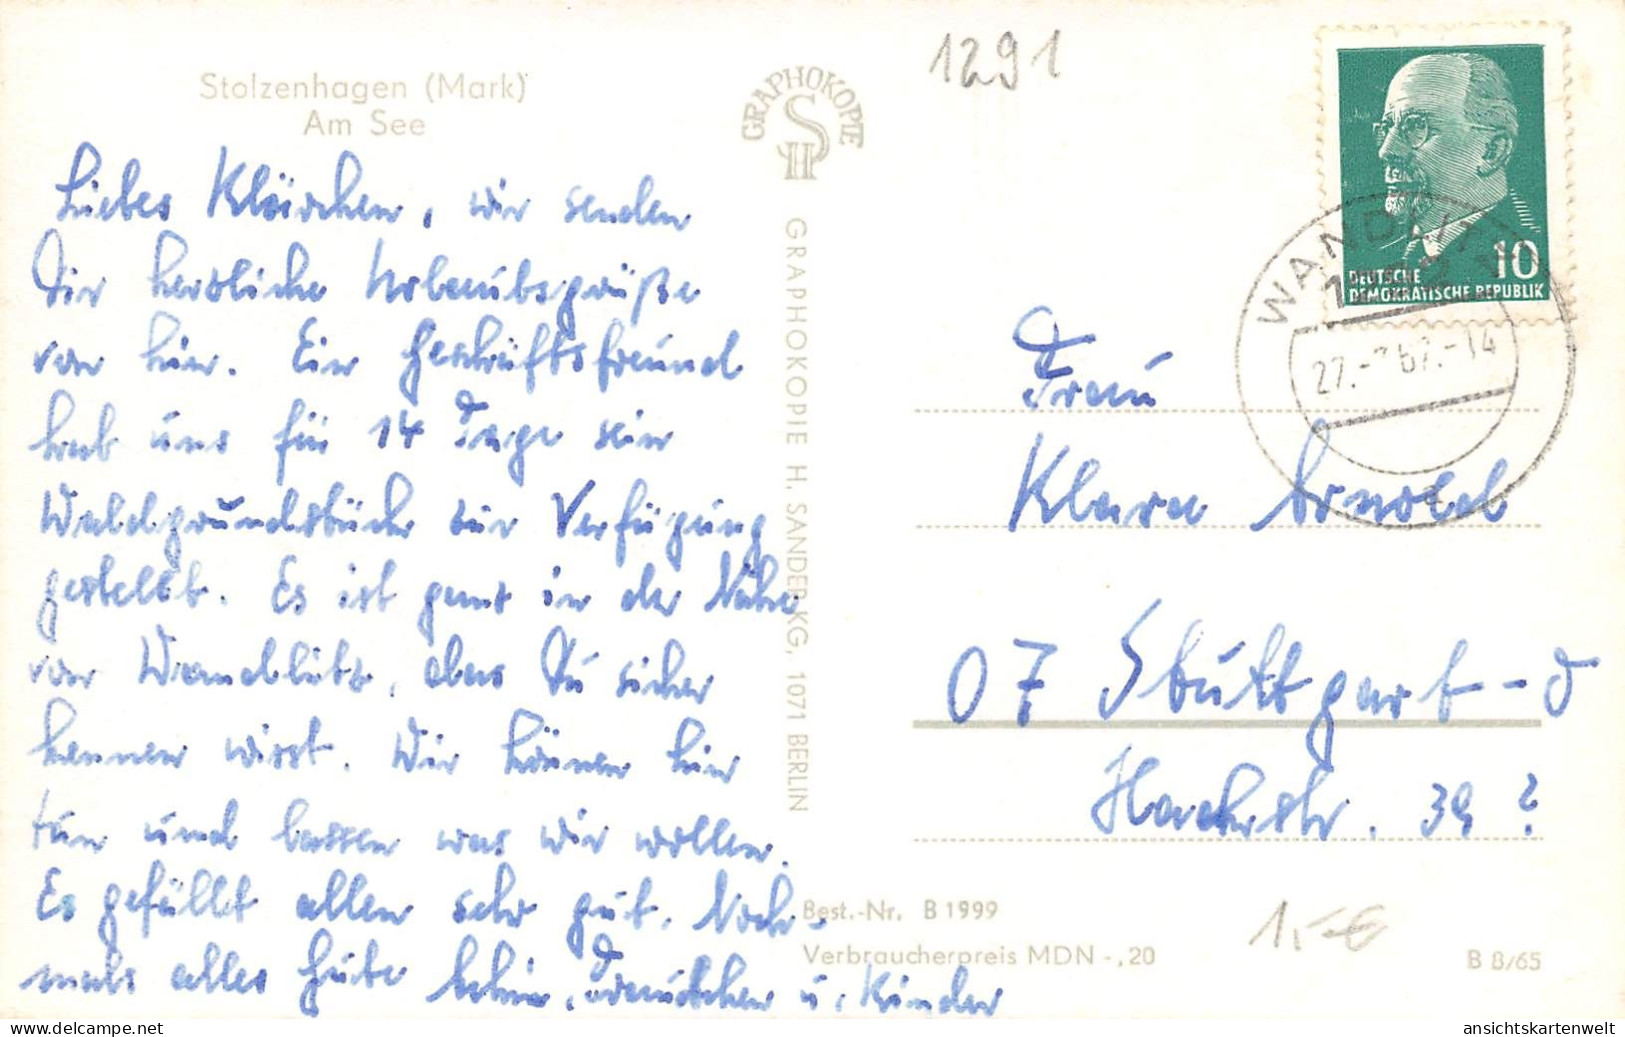 Stolzenhagen (Mark)
Am See
Liebes Klärchen, wir senden
Dir herzliche Urlaubsgrüße
von hier. Ein Geschäftsfreund
hat uns für 14 Tage sein
Waldgrundstück zur Verfügung
gestellt. Es ist ganz in der Nähe
von Wandlitz, das Du sicher
kennen wirst. Wir können hier
tun und lassen was wir wollen.
Es gefällt allen sehr gut. Noch-
mals alles Gute u. Kinder
GRAPHOKOPIE
HS
GRAPHOKOPIE H. SANDER KG, 1071 BERLIN
1291
10
DEUTSCHE
DEMOKRATISCHE REPUBLIK
WANDLITZ
27.-767.-14
Frau
Klara Arnold
07 Stuttgart-O
Hackstr. 39 ?
Best.-Nr. B 1999
Verbraucherpreis MDN -,20
1,-€
B 8/65
www.delcampe.net
ansichtskartenwelt